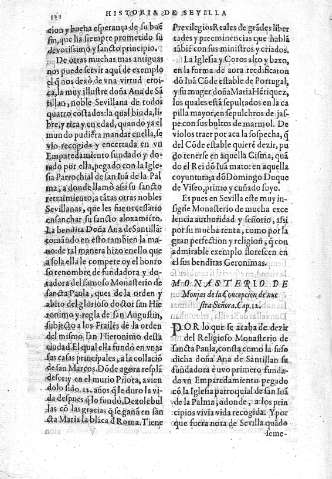 HISTORIA DE SEVILLA
cion y buena esperança de su buẽ
fin, que hà siempre prometido su
deuotissimo y sancto principio.
De otras muchas mas antiguas
nos puede seruir aqui de exemplo
el q̃ nos dexò de vna virtud eroica,
la muy illustre doña Ana de Sã
tillan, noble Seuillana de todos
quatro costados: la qual biuda, libre,
y rica y en edad, quando ya el
mundo pudiera mandar en ella, se
vio recogida y encerrada en vn
Emparedamiento fundado y dotado
por ella, pegado con la Iglesia
Parrochial de san Iuã de la Palma,
a donde llamò assi su sancto
retraimiento, a otras otras nobles
Seuillanas, que les fue necessario
ensanchar su sancto aloxamiẽto.
La bendita Doña Ana de Santillã:
tomãndo en esto tambien la mano
de tal manera hizo en ello que
a sola ella le compete oy el honroso
renombre de fundadora y dotadora
del famoso Monesterio de
sancta Paula, que es de la orden y
abito del glorioso doctor san Hieronimo
y regla de san Augustin,
subjecto a los Frailes de la orden
del mismo, san Hieronimo desta
ciudad. El qual ella fundò en vnas
sus casas principales, a la collaciõ
de san Marcos. Dõde agora resplãdesce
y en el murio Priora, auiendolo
sido
vida despues q̃ lo fundò. De zolebullas
cõ las gracias q̃ se ganã en sancta
Maria la blica d'Roma. Tiene
Preuilegios Reales de grãdes libertades
y preeminencias que hablã
tãbiẽ con sus ministros y criados.
La Iglesia y Coros alto y baxo,
en la forma de aora reedificaron
dõ Iuã Cõde estable de Portugal,
y su muger doña Maria Hẽriquez,
los quales estã sepultados en la capilla
mayor, en sepulchros de jaspe
con sus bultos de marmol. De
violas traer por aca la sospecha, q̃
del Cõde estable quiere dezir, pudo
tenerle en aquella Cisma, quãdo
el Rei dõ Iuã mato: en aquella
coyuntura, a dõ Domingo Duque
de Viseo, primo y cuñado suyo.
Es pues en Seuilla este muy insigne
Monasterio de mucha excelencia
authoridad y señorio, assi
por su mucha renta, como por la
gran perfection y religion, q̃ con
admirable exemplo florescen en
el sus benditas Geronimas.
MONASTERIO DE
Monjas de la Concepcion de nuestra
Señora. Cap. 12.
POR lo que se acaba de dezir
del Religioso Monasterio de
Sancta Paula, consta como la susodicha
doña Ana de Santillan su
fundadora tuuo primero fundado
vn Emparedamiento pegado
cõ la Iglesia parroquial de san Iuã
de la Palma, adonde, a los principios
viuia vida recogida. Y porque
fuera nota de Seuilla quãdo
seme-